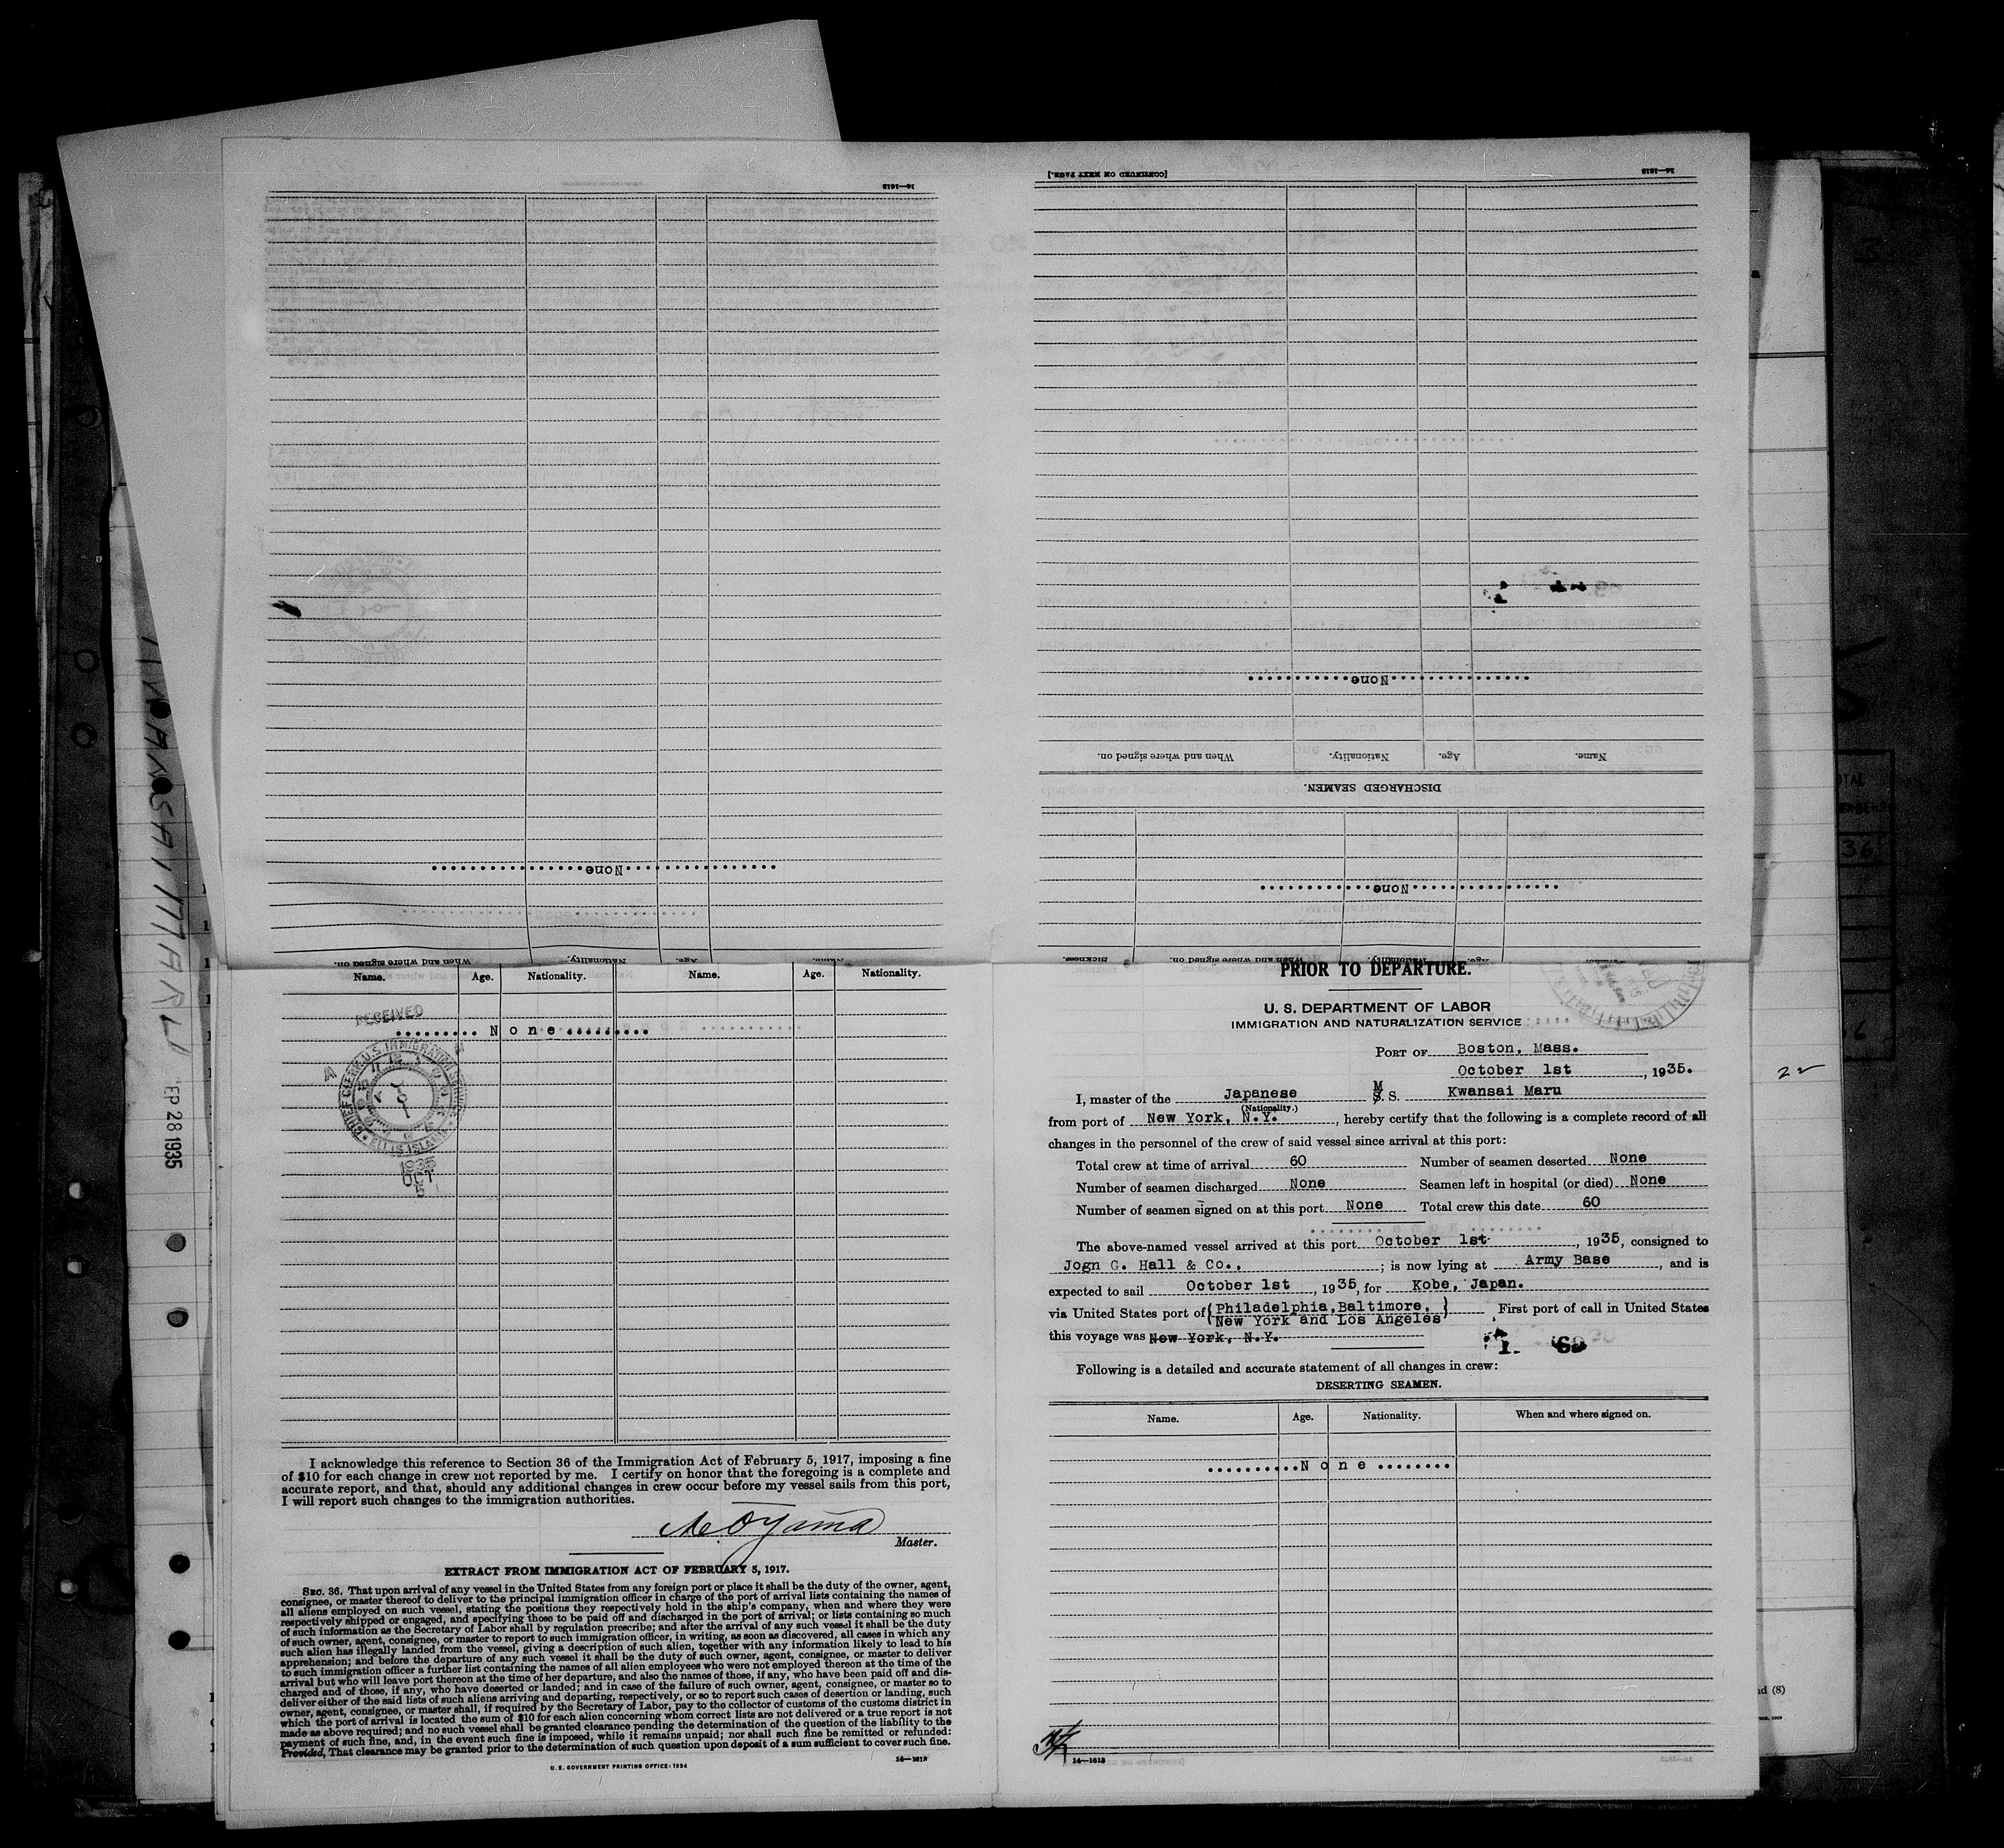 [CONTINUED ON NEXT PAGE.]
14—1613
14—1613
None
Name. Age. Nationality. When and where signed on.
DISCHARGED SEAMEN.
None
None
Age. Nationality. When and where signed on.
Age. Nationality. When and where signed on. Sickness.
KWANSAI MARU
EP 28 1935
Name. Age. Nationality. Name. Age. Nationality.
RECEIVED
......... N o n e .........
CHIEF CLERK U.S. IMMIGRATION SERVICE
ELLIS ISLAND
1935
OCT
5
I acknowledge this reference to Section 36 of the Immigration Act of February 5, 1917, imposing a fine
of $10 for each change in crew not reported by me. I certify on honor that the foregoing is a complete and
accurate report, and that, should any additional changes in crew occur before my vessel sails from this port,
I will report such changes to the immigration authorities.
Oyama
Master.
EXTRACT FROM IMMIGRATION ACT OF FEBRUARY 5, 1917.
SEC. 36. That upon arrival of any vessel in the United States from any foreign port or place it shall be the duty of the owner, agent,
consignee, or master thereof to deliver to the principal immigration officer in charge of the port of arrival lists containing the names of
all aliens employed on such vessel, stating the positions they respectively hold in the ship's company, when and where they were
respectively shipped or engaged, and specifying those to be paid off and discharged in the port of arrival; or lists containing so much
of such information as the Secretary of Labor shall by regulation prescribe; and after the arrival of any such vessel it shall be the duty
of such owner, agent, consignee, or master to report to such immigration officer, in writing, as soon as discovered, all cases in which any
such alien has illegally landed from the vessel, giving a description of such alien, together with any information likely to lead to his
apprehension; and before the departure of any such vessel it shall be the duty of such owner, agent, consignee, or master to deliver
to such immigration officer a further list containing the names of all alien employees who were not employed thereon at the time of the
arrival but who will leave port thereon at the time of her departure, and also the names of those, if any, who have been paid off and dis-
charged and of those, if any, who have deserted or landed; and in case of the failure of such owner, agent, consignee, or master so to
deliver either of the said lists of such aliens arriving and departing, respectively, or so to report such cases of desertion or landing, such
owner, agent, consignee, or master shall, if required by the Secretary of Labor, pay to the collector of customs of the customs district in
which the port of arrival is located the sum of $10 for each alien concerning whom correct lists are not delivered or a true report is not
made as above required; and no such vessel shall be granted clearance pending the determination of the question of the liability to the
payment of such fine, and, in the event such fine is imposed, while it remains unpaid; nor shall such fine be remitted or refunded:
Provided, That clearance may be granted prior to the determination of such question upon deposit of a sum sufficient to cover such fine.
14—1613
U. S. GOVERNMENT PRINTING OFFICE: 1934
PRIOR TO DEPARTURE.
U. S. DEPARTMENT OF LABOR
IMMIGRATION AND NATURALIZATION SERVICE
PORT OF Boston, Mass.
October 1st, 1935.
I, master of the Japanese M S. S. Kwansai Maru
(Nationality.)
from port of New York, N.Y., hereby certify that the following is a complete record of all
changes in the personnel of the crew of said vessel since arrival at this port:
Total crew at time of arrival 60 Number of seamen deserted None
Number of seamen discharged None Seamen left in hospital (or died) None
Number of seamen signed on at this port None Total crew this date 60
The above-named vessel arrived at this port October 1st, 1935, consigned to
Jogn G. Hall & Co., ; is now lying at Army Base, and is
expected to sail October 1st, 1935, for Kobe, Japan.
via United States port of (Philadelphia, Baltimore, New York and Los Angeles) First port of call in United States
this voyage was New York, N.Y.
Following is a detailed and accurate statement of all changes in crew:
DESERTING SEAMEN.
Name. Age. Nationality. When and where signed on.
..........N o n e ........
14—1613
22